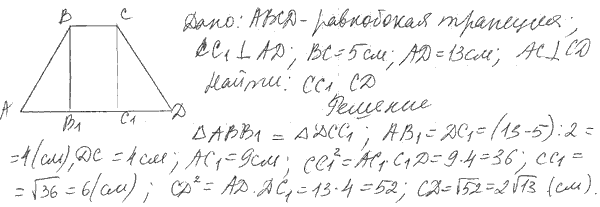 B C
A B₁ C₁ D
Дано: ABCD - равнобокая трапеция;
CC₁ ⊥ AD; BC = 5 см; AD = 13 см; AC ⊥ CD
Найти: CC₁ CD
Решение
△ABB₁ = △DCC₁; AB₁ = DC₁ = (13-5):2 =
= 4 (см), DC = 4 см; AC₁ = 9 см; CC₁² = AC₁·C₁D = 9·4 = 36; CC₁ =
= √36 = 6 (см); CD² = AD·DC₁ = 13·4 = 52; CD = √52 = 2√13 (см).